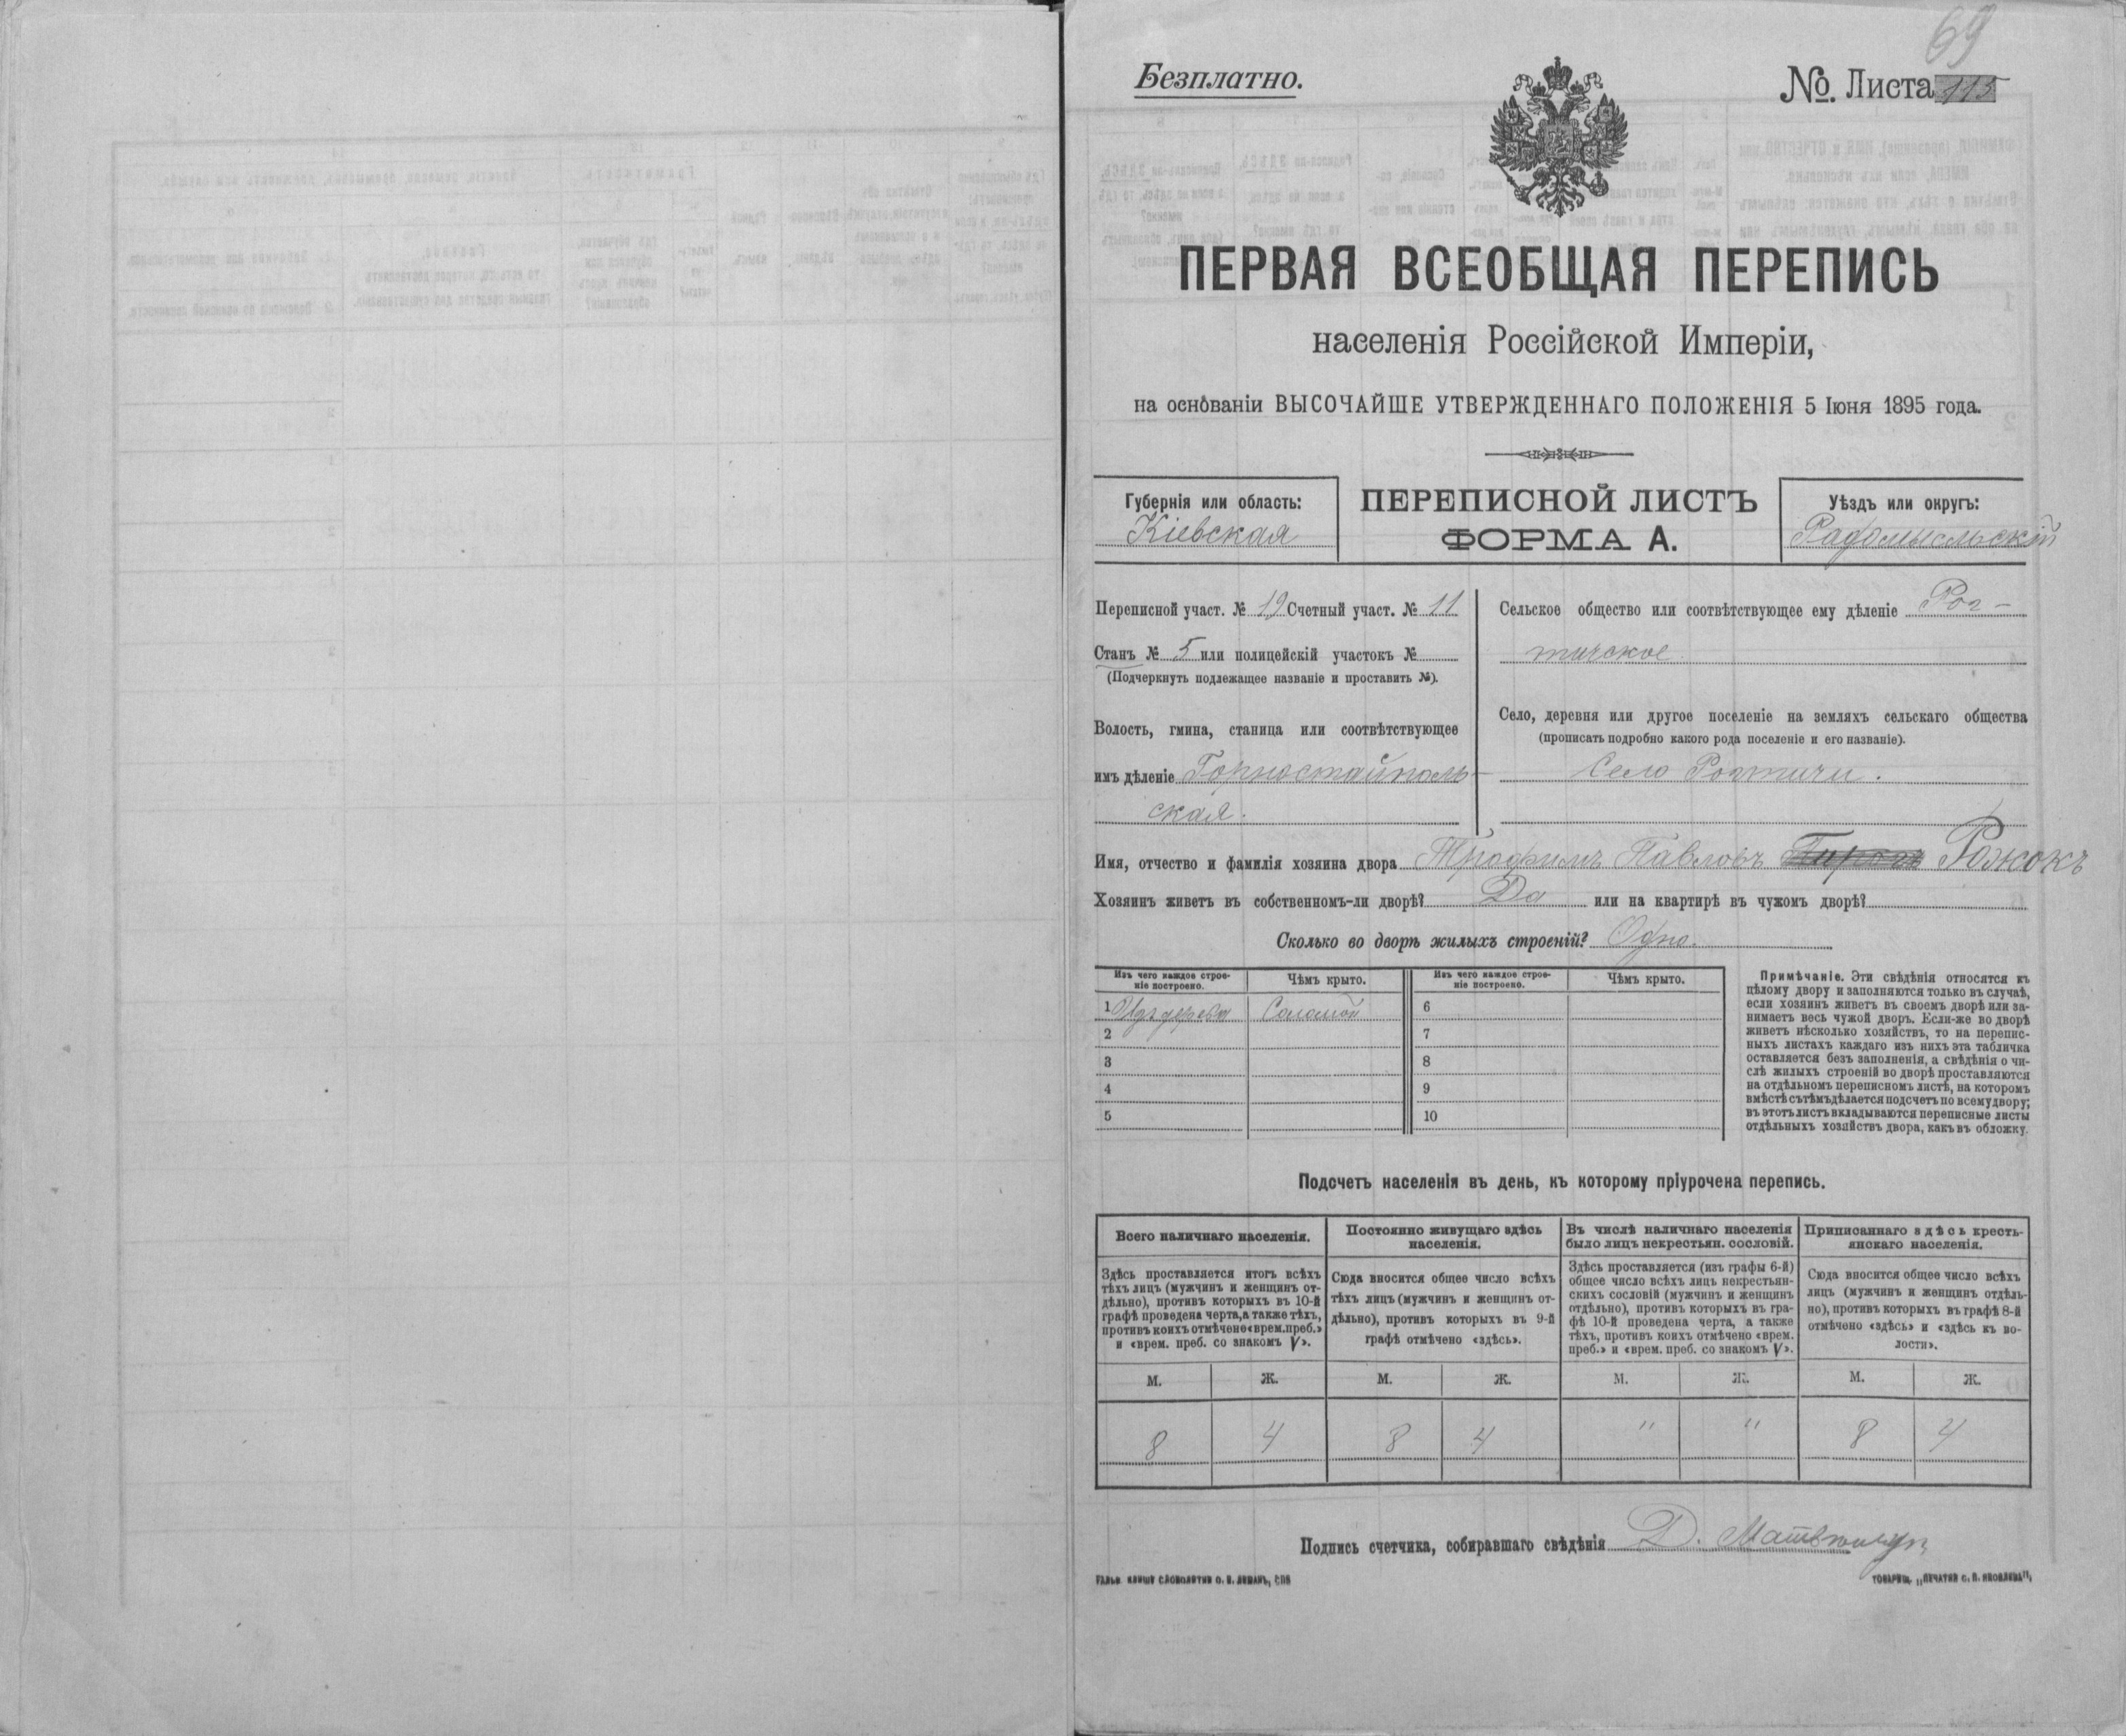 69
Безплатно.
№. Листа 115
ПЕРВАЯ ВСЕОБЩАЯ ПЕРЕПИСЬ
населенія Россійской Имперіи,
на основаніи ВЫСОЧАЙШЕ УТВЕРЖДЕННАГО ПОЛОЖЕНІЯ 5 Іюня 1895 года.
Губернія или область:
Кіевская
ПЕРЕПИСНОЙ ЛИСТЪ
ФОРМА А.
Уѣздъ или округъ:
Радомысльскій
Переписной участ. № 19 Счетный участ. № 11
Станъ № 5 или полицейскій участокъ №
(Подчеркнуть подлежащее названіе и проставить №).
Волость, гмина, станица или соотвѣтствующее
имъ дѣленіе Горностайполь-
ская.
Сельское общество или соотвѣтствующее ему дѣленіе Рот-
тичское
Село, деревня или другое поселеніе на земляхъ сельскаго общества
(прописать подробно какого рода поселеніе и его названіе).
Село Роттичи.
Имя, отчество и фамилія хозяина двора Трофимъ Павловъ Рожокъ
Хозяинъ живетъ въ собственномъ-ли дворѣ? Да или на квартирѣ въ чужомъ дворѣ?
Сколько во дворѣ жилыхъ строеній? Одно.
Изъ чего каждое строе-
ніе построено.
Чѣмъ крыто.
Изъ чего каждое строе-
ніе построено.
Чѣмъ крыто.
1 Изъ дерева Соломой 6
2 7
3 8
4 9
5 10
Примѣчаніе. Эти свѣдѣнія относятся къ
цѣлому двору и заполняются только въ случаѣ,
если хозяинъ живетъ въ своемъ дворѣ или за-
нимаетъ весь чужой дворъ. Если-же во дворѣ
живетъ нѣсколько хозяйствъ, то на перепис-
ныхъ листахъ каждаго изъ нихъ эта табличка
оставляется безъ заполненія, а свѣдѣнія о чи-
слѣ жилыхъ строеній во дворѣ проставляются
на отдѣльномъ переписномъ листѣ, на которомъ
вмѣстѣ съ тѣмъ дѣлается подсчетъ по всему двору;
въ этотъ листъ вкладываются переписные листы
отдѣльныхъ хозяйствъ двора, какъ въ обложку.
Подсчетъ населенія въ день, къ которому пріурочена перепись.
Всего наличнаго населенія.
Здѣсь проставляется итогъ всѣхъ
тѣхъ лицъ (мужчинъ и женщинъ от-
дѣльно), противъ которыхъ въ 10-й
графѣ проведена черта, а также тѣхъ,
противъ коихъ отмѣчено «врем. преб.»
и «врем. преб. со знакомъ V».
Постоянно живущаго здѣсь
населенія.
Сюда вносится общее число всѣхъ
тѣхъ лицъ (мужчинъ и женщинъ от-
дѣльно), противъ которыхъ въ 9-й
графѣ отмѣчено «здѣсь».
Въ числѣ наличнаго населенія
было лицъ некрестьян. сословій.
Здѣсь проставляется (изъ графы 6-й)
общее число всѣхъ лицъ некрестьян-
скихъ сословій (мужчинъ и женщинъ
отдѣльно), противъ которыхъ въ гра-
фѣ 10-й проведена черта, а также
тѣхъ, противъ коихъ отмѣчено «врем.
преб.» и «врем. преб. со знакомъ V».
Приписаннаго здѣсь кресть-
янскаго населенія.
Сюда вносится общее число всѣхъ
лицъ (мужчинъ и женщинъ отдѣль-
но), противъ которыхъ въ графѣ 8-й
отмѣчено «здѣсь» и «здѣсь къ во-
лости».
М. Ж. М. Ж. М. Ж. М. Ж.
8 4 8 4 " " 8 4
Подпись счетчика, собиравшаго свѣдѣнія Д.
ТОВАРИЩ. „ПЕЧАТНЯ С. П. ЯКОВЛЕВА".